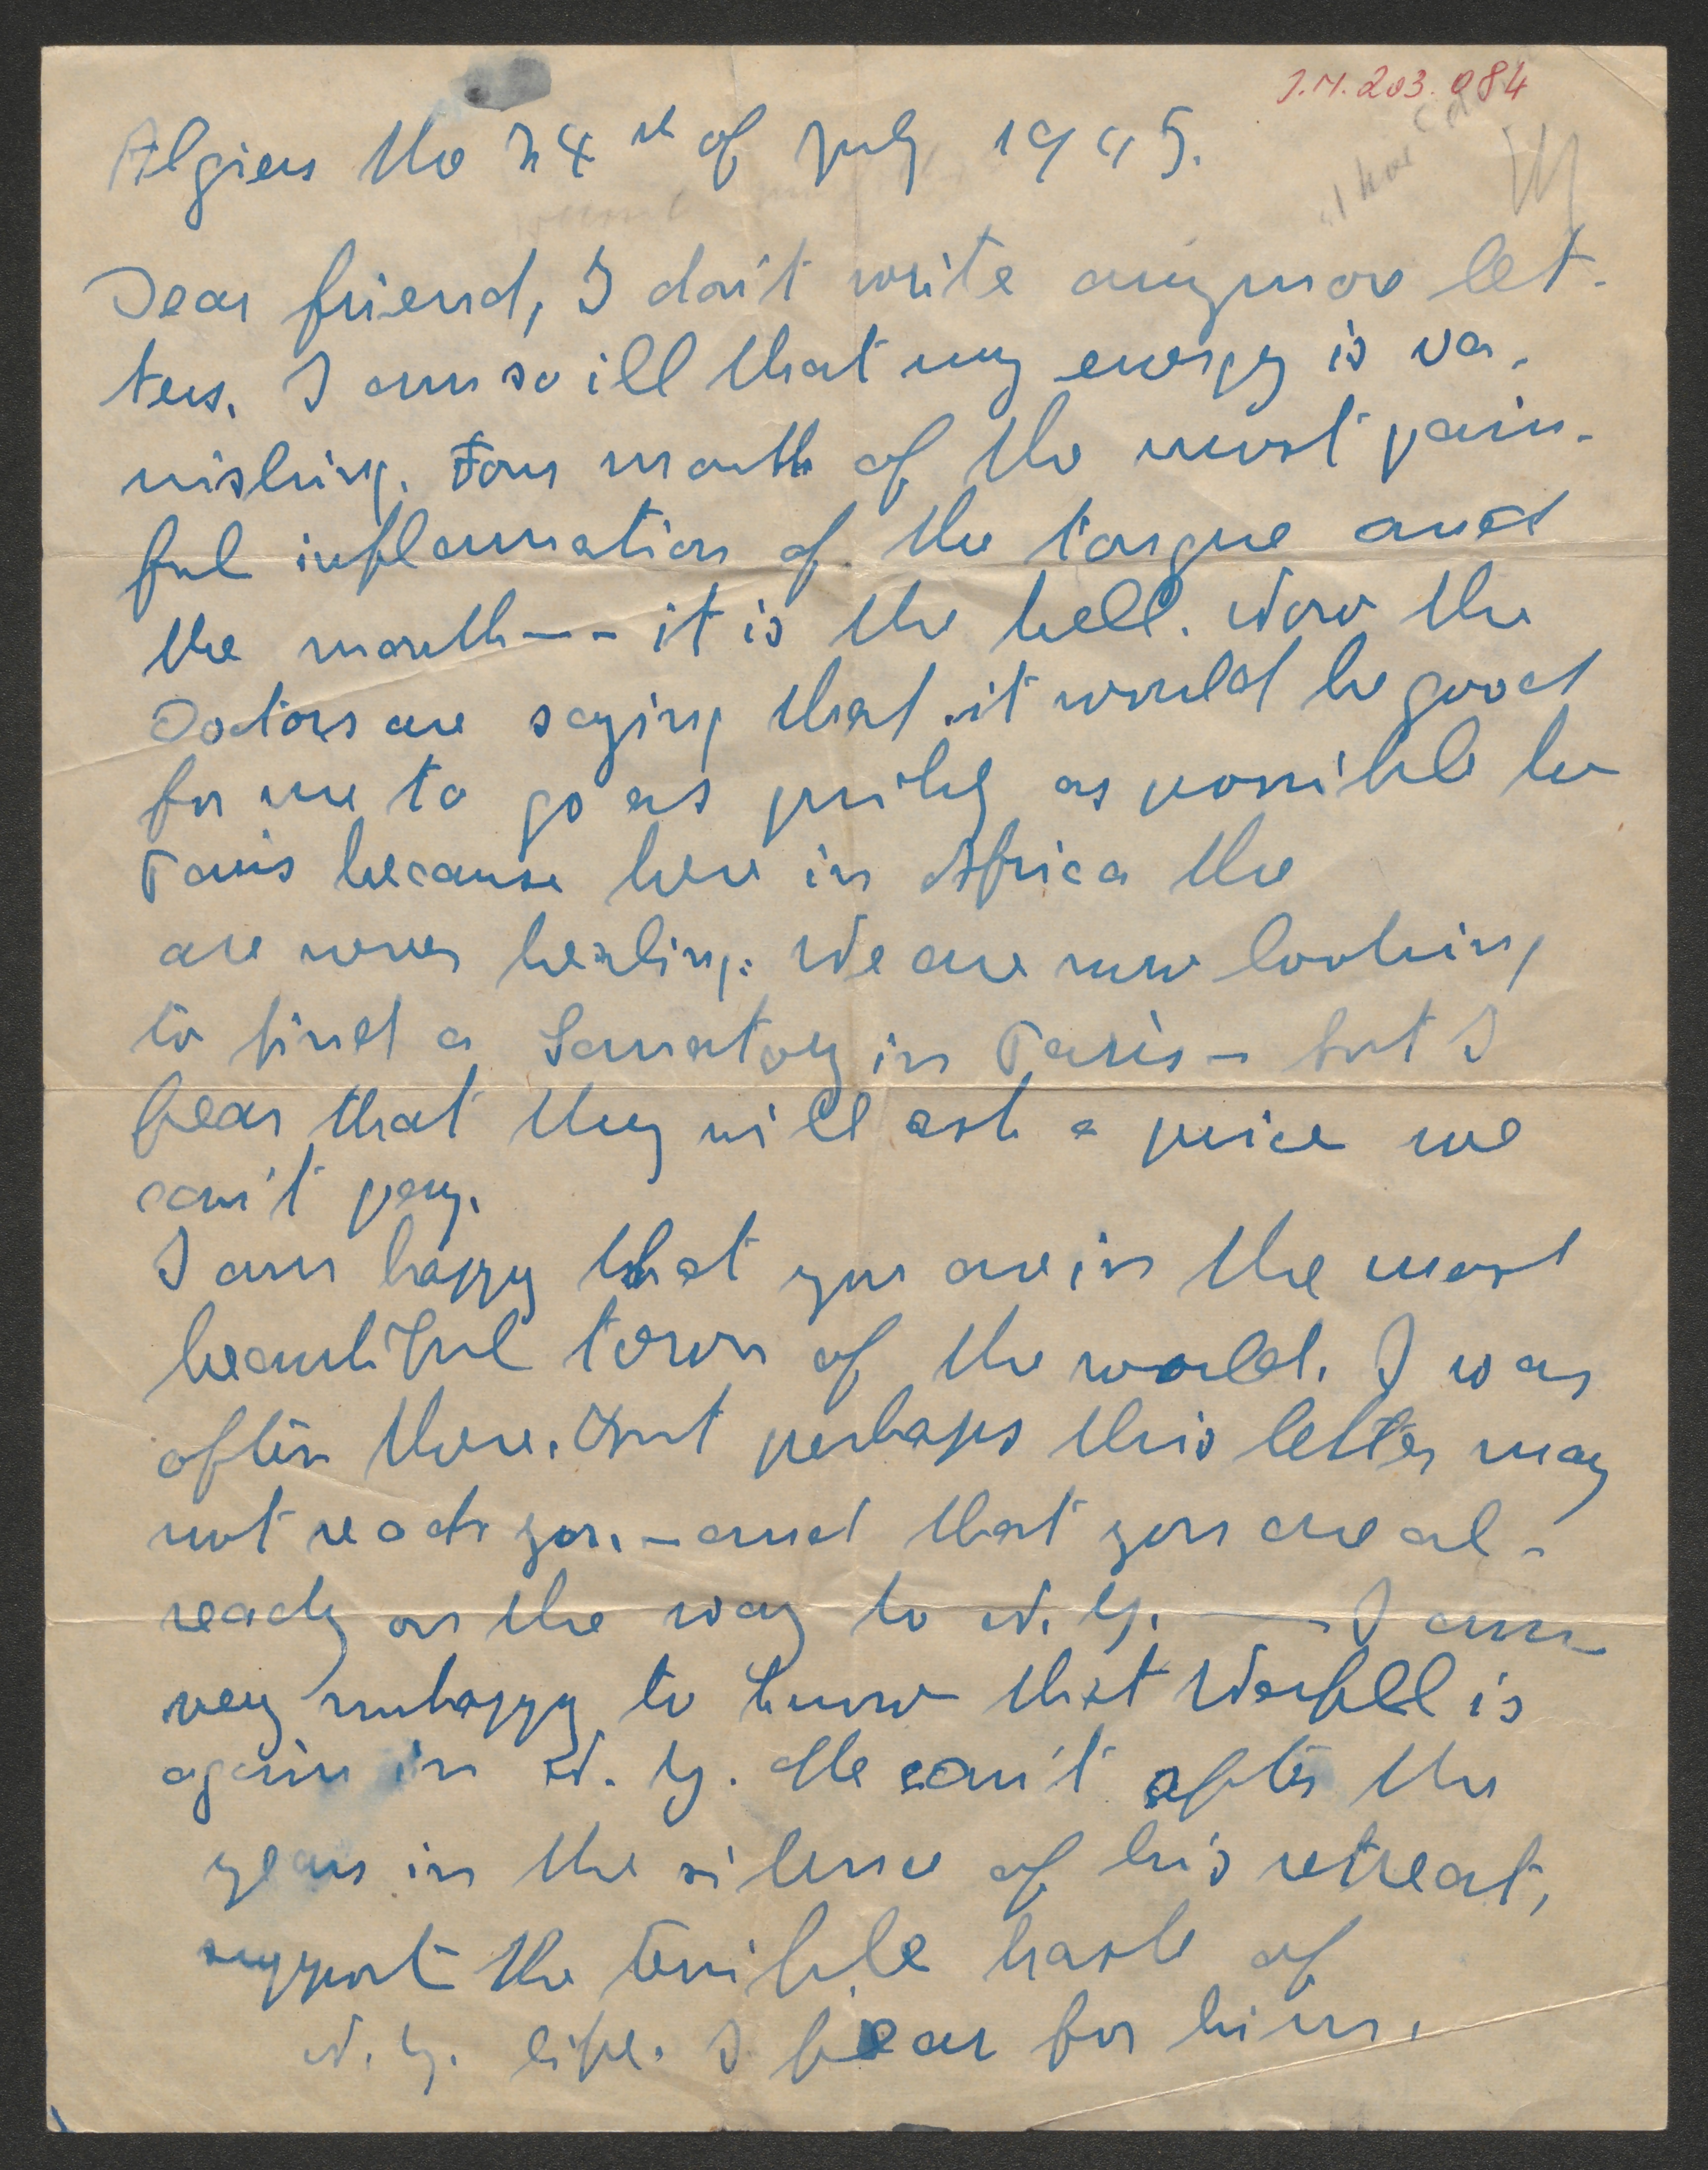 J.N. 203.084
Algiers the 24th of July 1945.
"I have
Dear friend, I don't write anymore let-
ters. I am so ill that my energy is va-
nishing. Four month of the most pain-
ful inflammation of the tongue and
the mouth -- it is the hell. Now the
Doctors are saying that it would be good
for me to go as quikly as possible to
Paris because here in Africa the
are never healing. We are now looking
to find a Sanatory in Paris - but I
fear that they will ask a price we
can't pay.
I am happy that you are in the most
beautiful town of the world. I was
often there. But perhaps this letter may
not reach you. - and that you are al-
ready on the way to N.Y. — I am
very unhappy to know that Werfell is
again in N.Y. He can't after the
years in the silence of his retreat,
support the terrible haste of
N.Y. life. I fear for him.